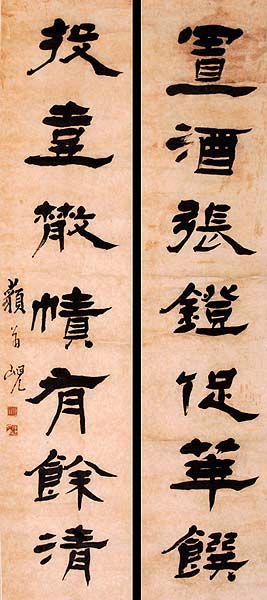 置酒張鐙促華饌
投壺散幘有餘清
藐翁峴